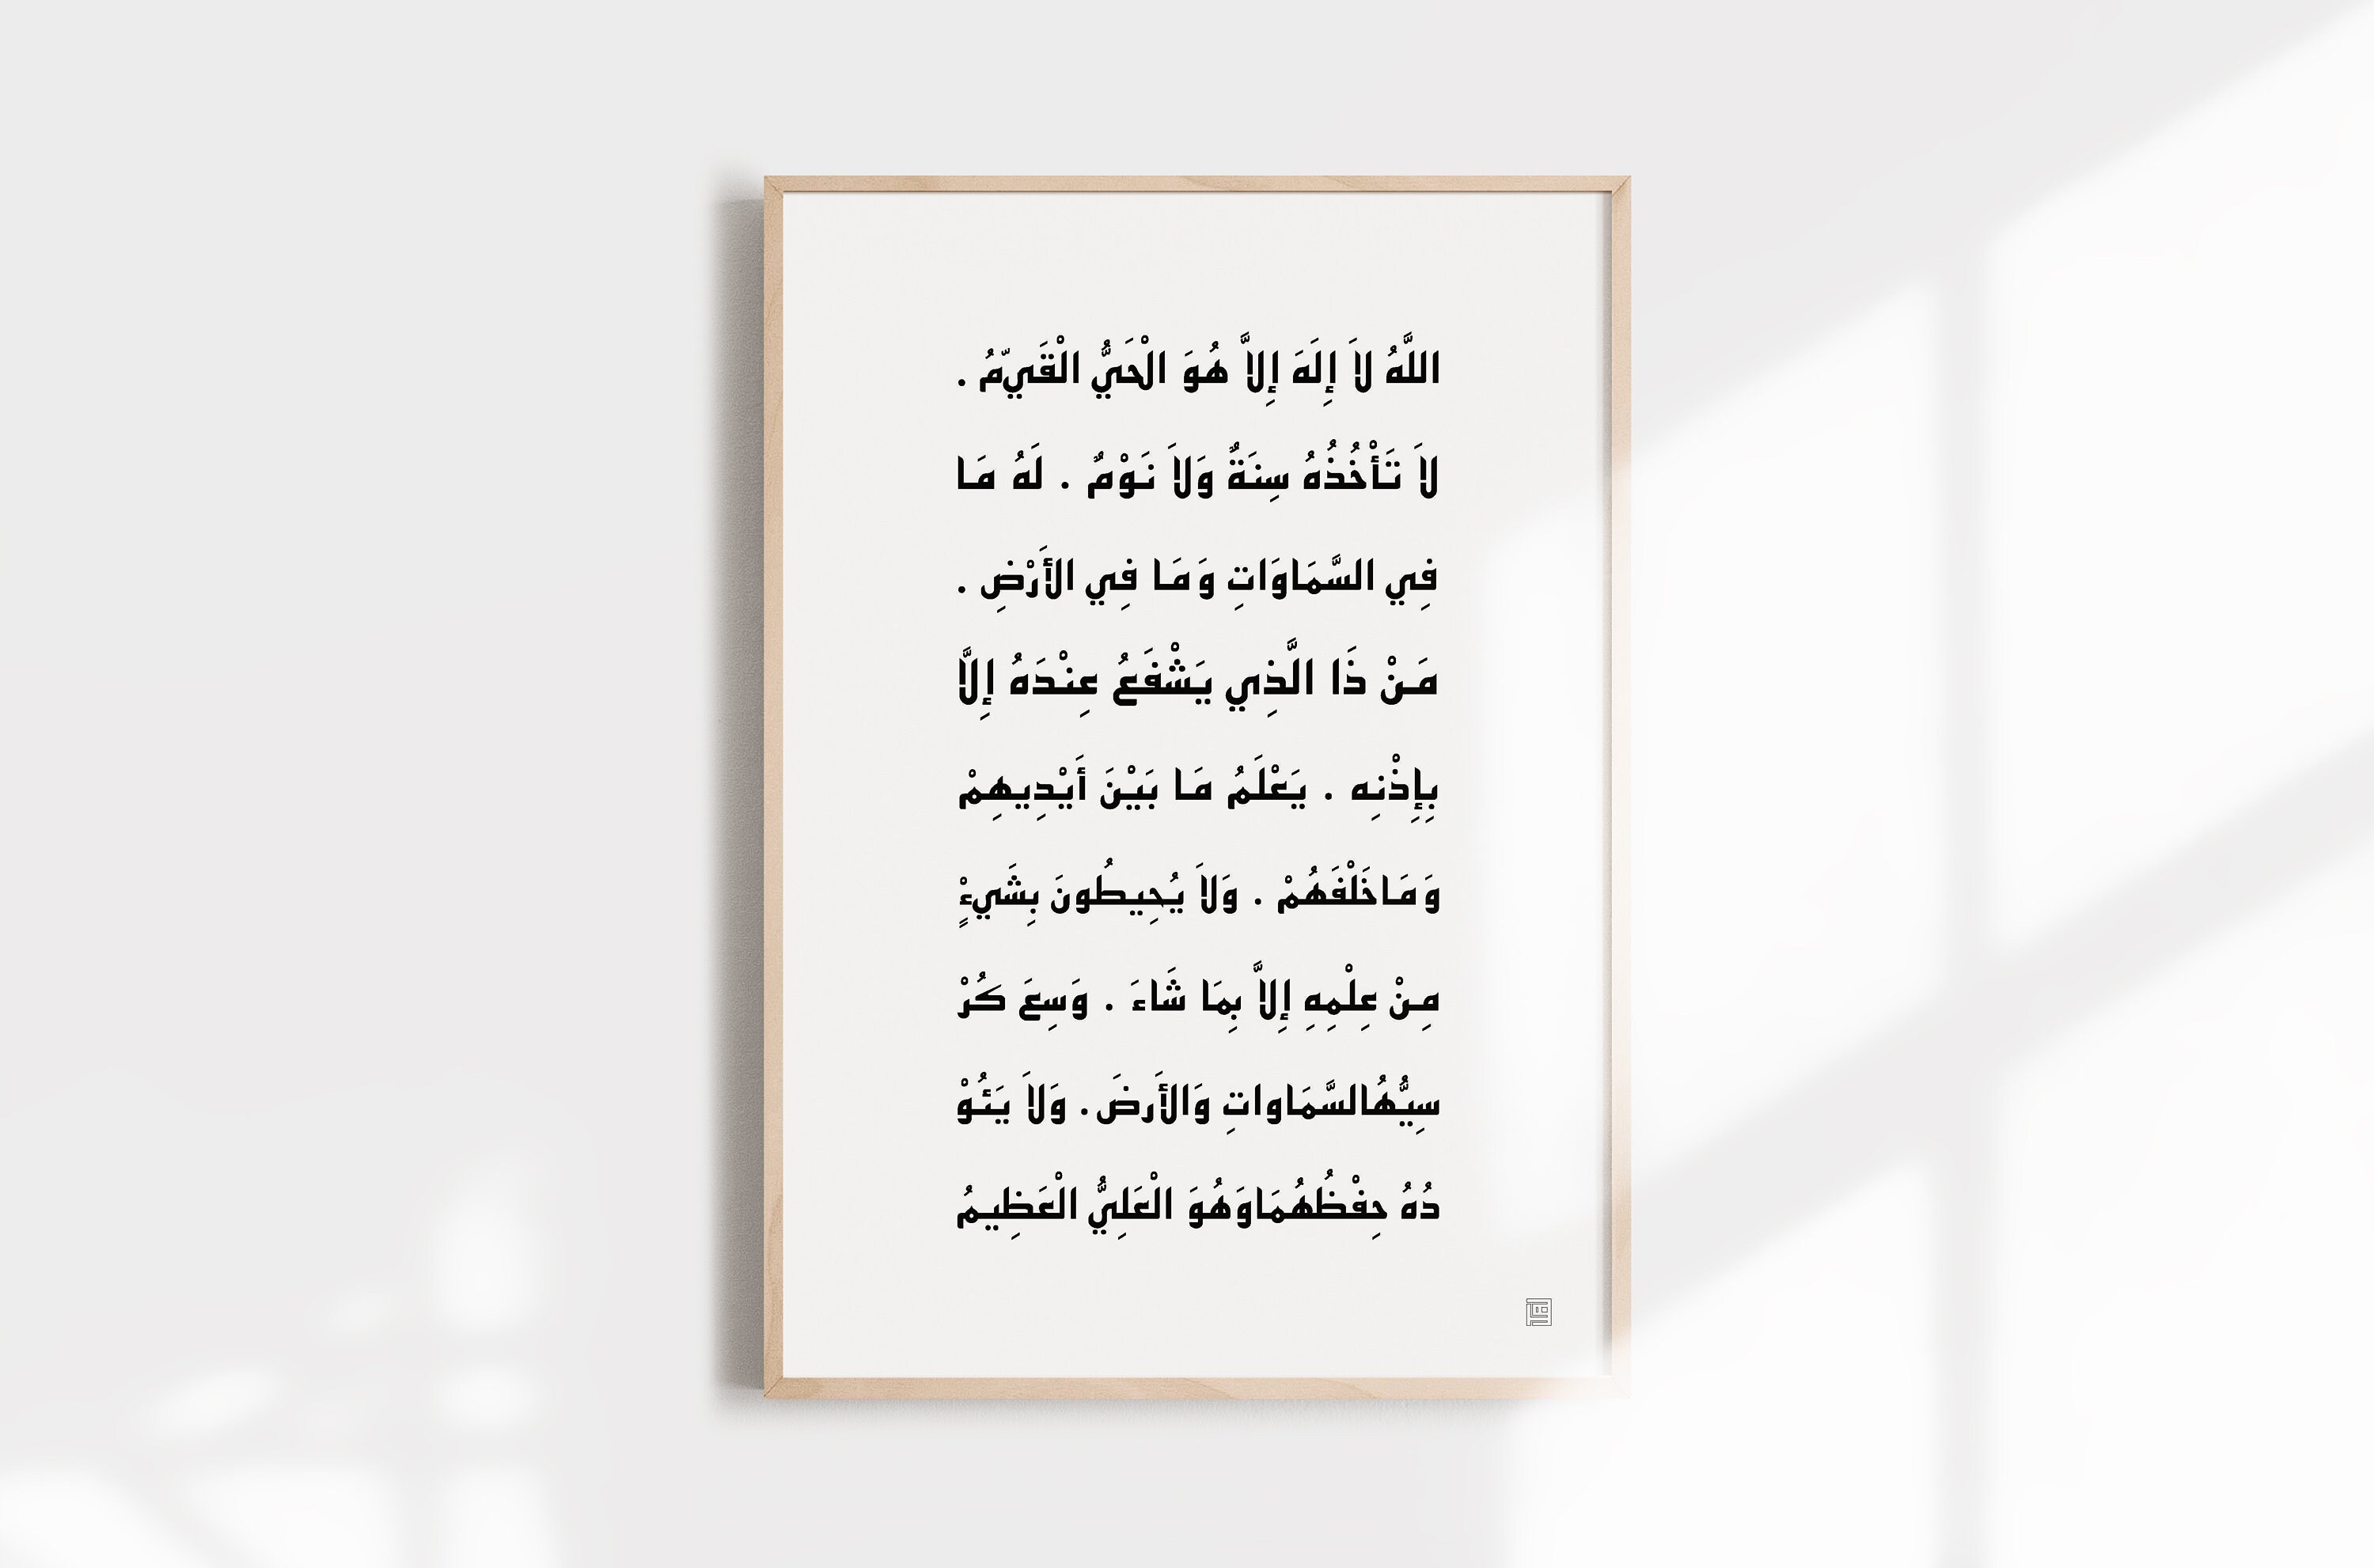 اللَّهُ لاَ إِلَهَ إِلاَّ هُوَ الْحَيُّ الْقَيّمُ .
لاَ تَأْخُذُهُ سِنَةٌ وَلاَ نَوْمٌ . لَهُ مَا
فِي السَّمَاوَاتِ وَمَا فِي الأَرْضِ .
مَنْ ذَا الَّذِي يَشْفَعُ عِنْدَهُ إِلاَّ
بِإِذْنِه . يَعْلَمُ مَا بَيْنَ أَيْدِيهِمْ
وَمَاخَلْفَهُمْ . وَلاَ يُحِيطُونَ بِشَيءٍْ
مِنْ عِلْمِهِ إِلاَّ بِمَا شَاءَ . وَسِعَ كُرْ
سِيُّهُالسَّمَاواتِ وَالأَرضَ . وَلاَ يَئُوْ
دُهُ حِفْظُهُمَاوَهُوَ الْعَلِيُّ الْعَظِيمُ